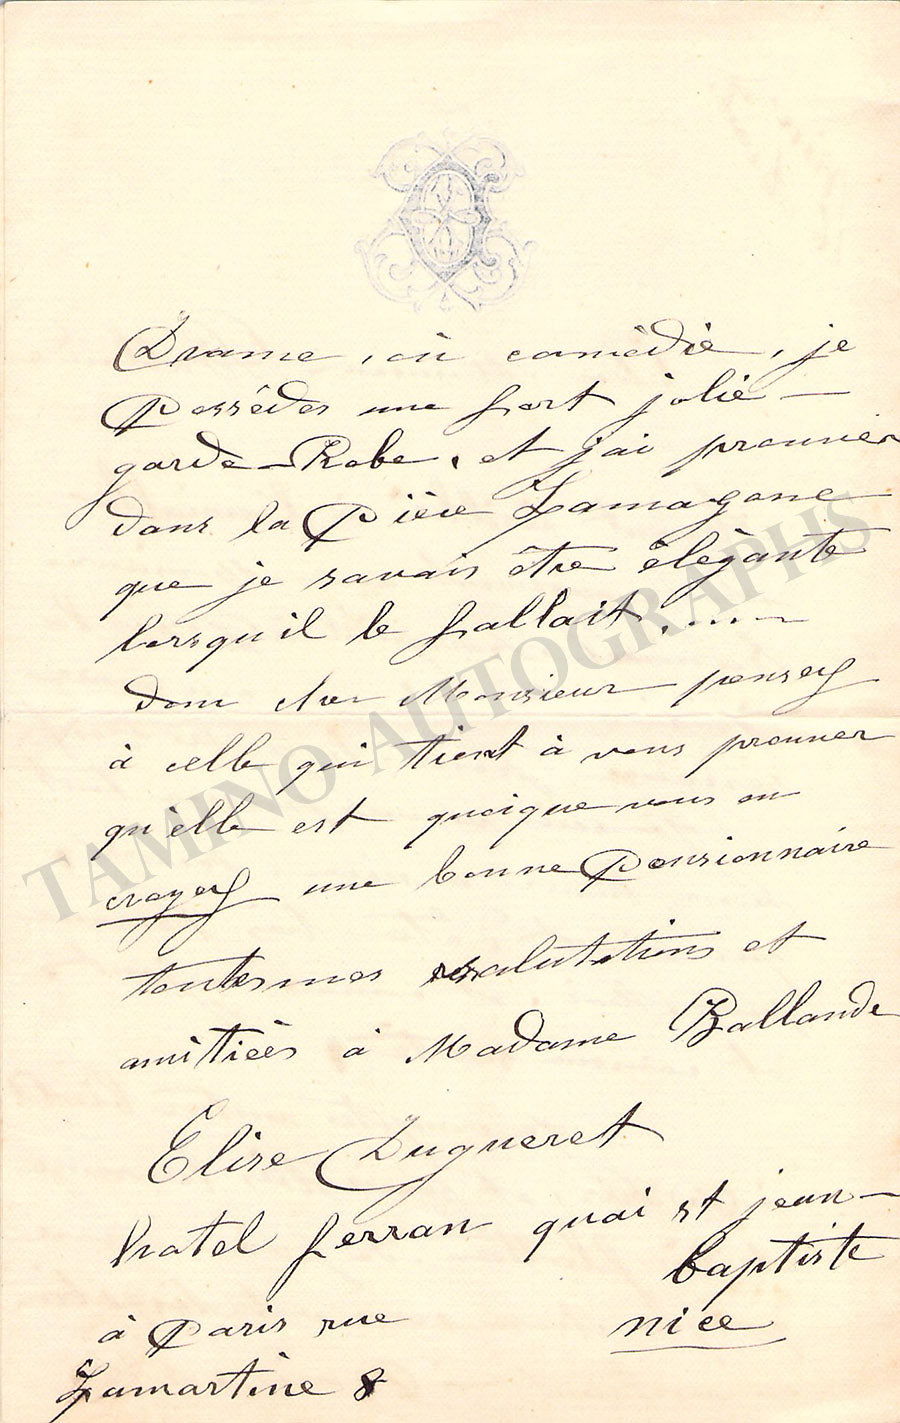 Drame, où comèdie, je
Possèdes une fort jolie —
garde-Robe, et j'ai prouvèr
dans la Pièce
que je savais être élègante
lorsqu'il le fallait.....
donc cher Monsieur pensez
à celle qui tient à vous prouver
qu'elle est quoique vous en
croyez une bonne Pensionnaire
toutes mes salutations et
amitièes à Madame Ballande
Elise Dugueret
hotel ferran quai st jean-
baptiste
à Paris rue nice
Lamartine 8
TAMINO AUTOGRAPHS